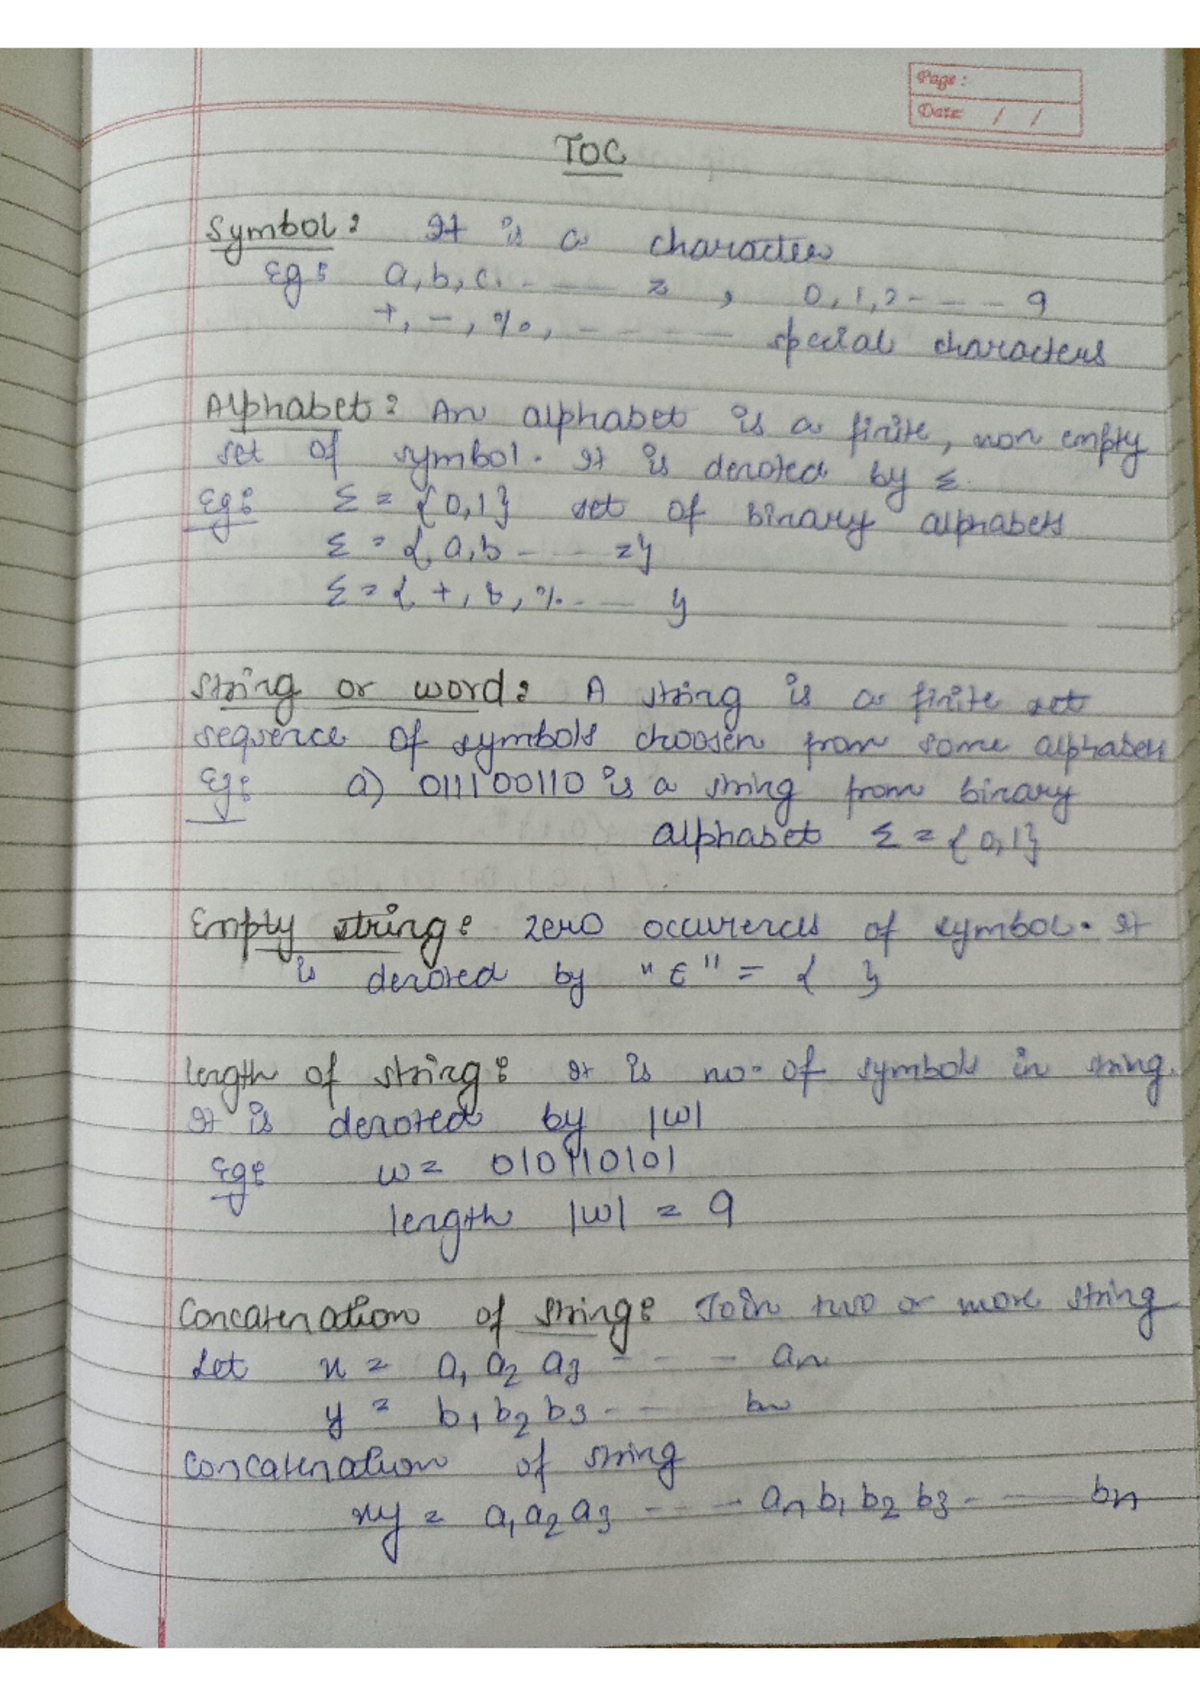 Page :
Date / /
TOC
Symbol : It is a character
Eg : a, b, c. - — — z , 0, 1, 2 - — - 9
+, -, %, - - - - — special characters
Alphabet : An alphabet is a finite, non empty
set of symbol. It is denoted by Σ.
Eg : Σ = {0,1} set of binary alphabets
Σ = { a, b - - - z}
Σ = { +, %. - — }
String or word : A string is a finite set
sequence of symbols choosen from some alphabets
Eg : a) 011100110 is a string from binary
alphabet Σ = {0,1}
Empty string : zero occurences of symbol. It
is denoted by "ε" = { }
length of string : It is no. of symbols in string.
It is denoted by |w|
Eg : w = 010110101
length |w| = 9
Concatenation of string : Join two or more string
Let x = a1 a2 a3 - - - an
y = b1 b2 b3 - - - bn
Concatenation of string
xy = a1 a2 a3 - - - an b1 b2 b3 - - — bn